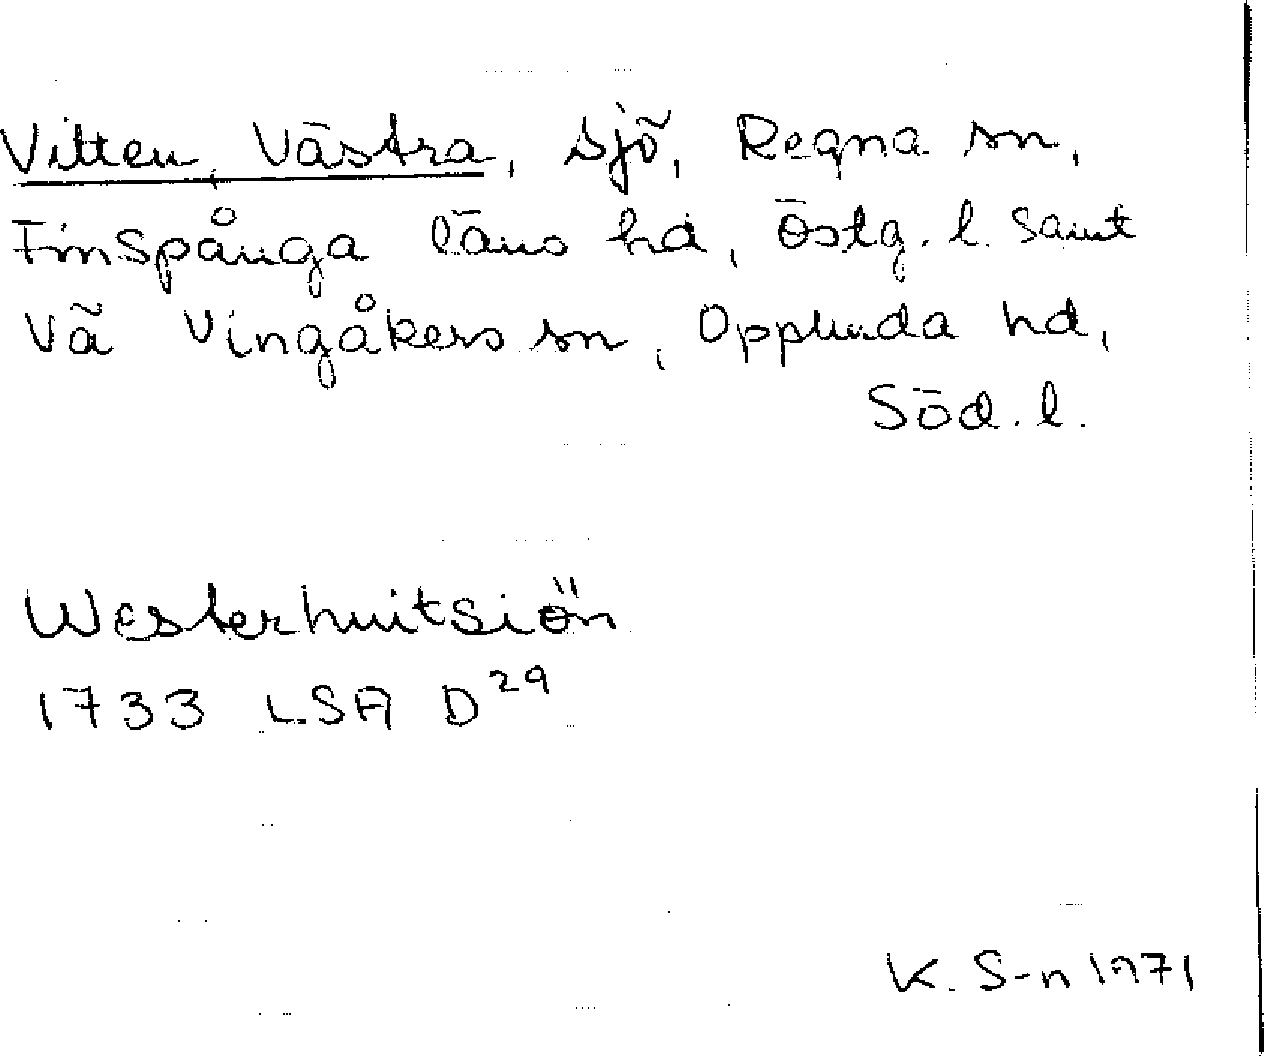 Vitten, Västra, sjö, Regna sn,
Finspånga läns hd, Östg. l. samt
Vä Vingåkers sn, Oppunda hd,
Söd. l.
Westerhuitsiön
1733 LSA D 29
K. S-n 1971